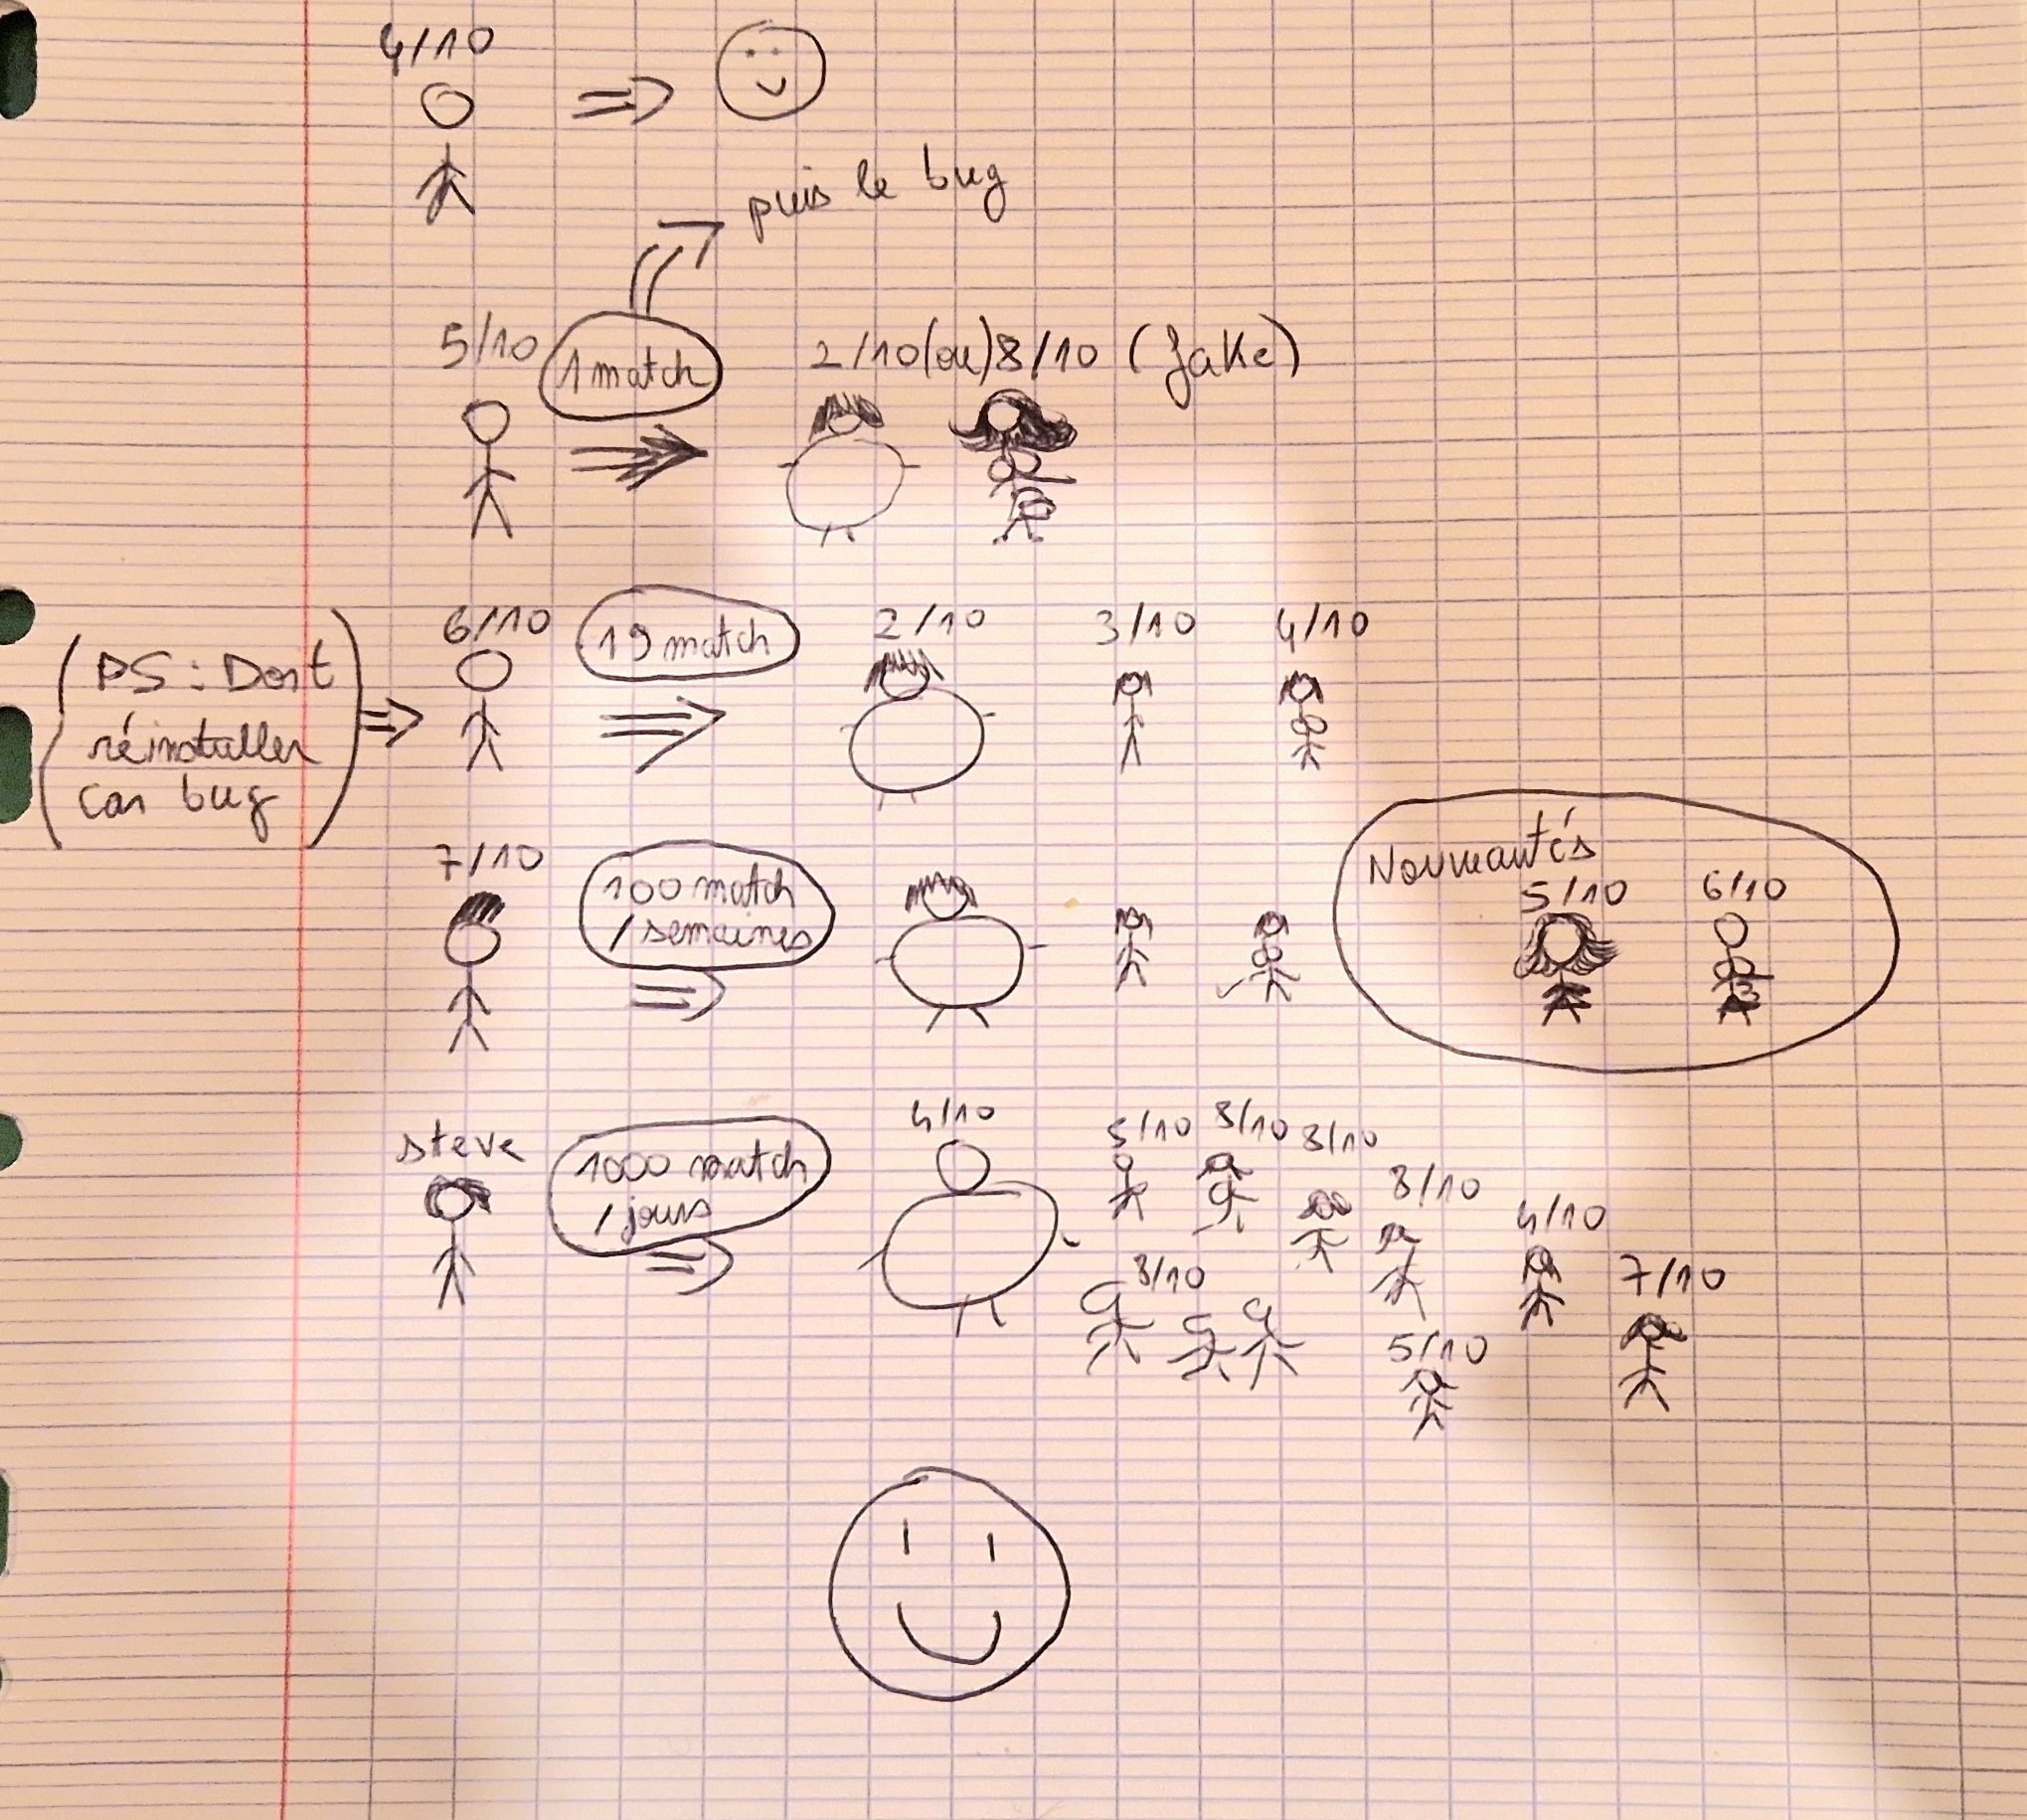 4/10
puis le bug
5/10 1 match 2/10 (ou) 8/10 (fake)
6/10 19 match 2/10 3/10 4/10
(PS : Doit
réinstaller
car bug)
7/10 100 match
/ semaines
Nouveautés
5/10 6/10
steve 1000 match
/ jours
4/10 5/10 8/10 8/10
8/10 4/10
8/10 7/10
5/10